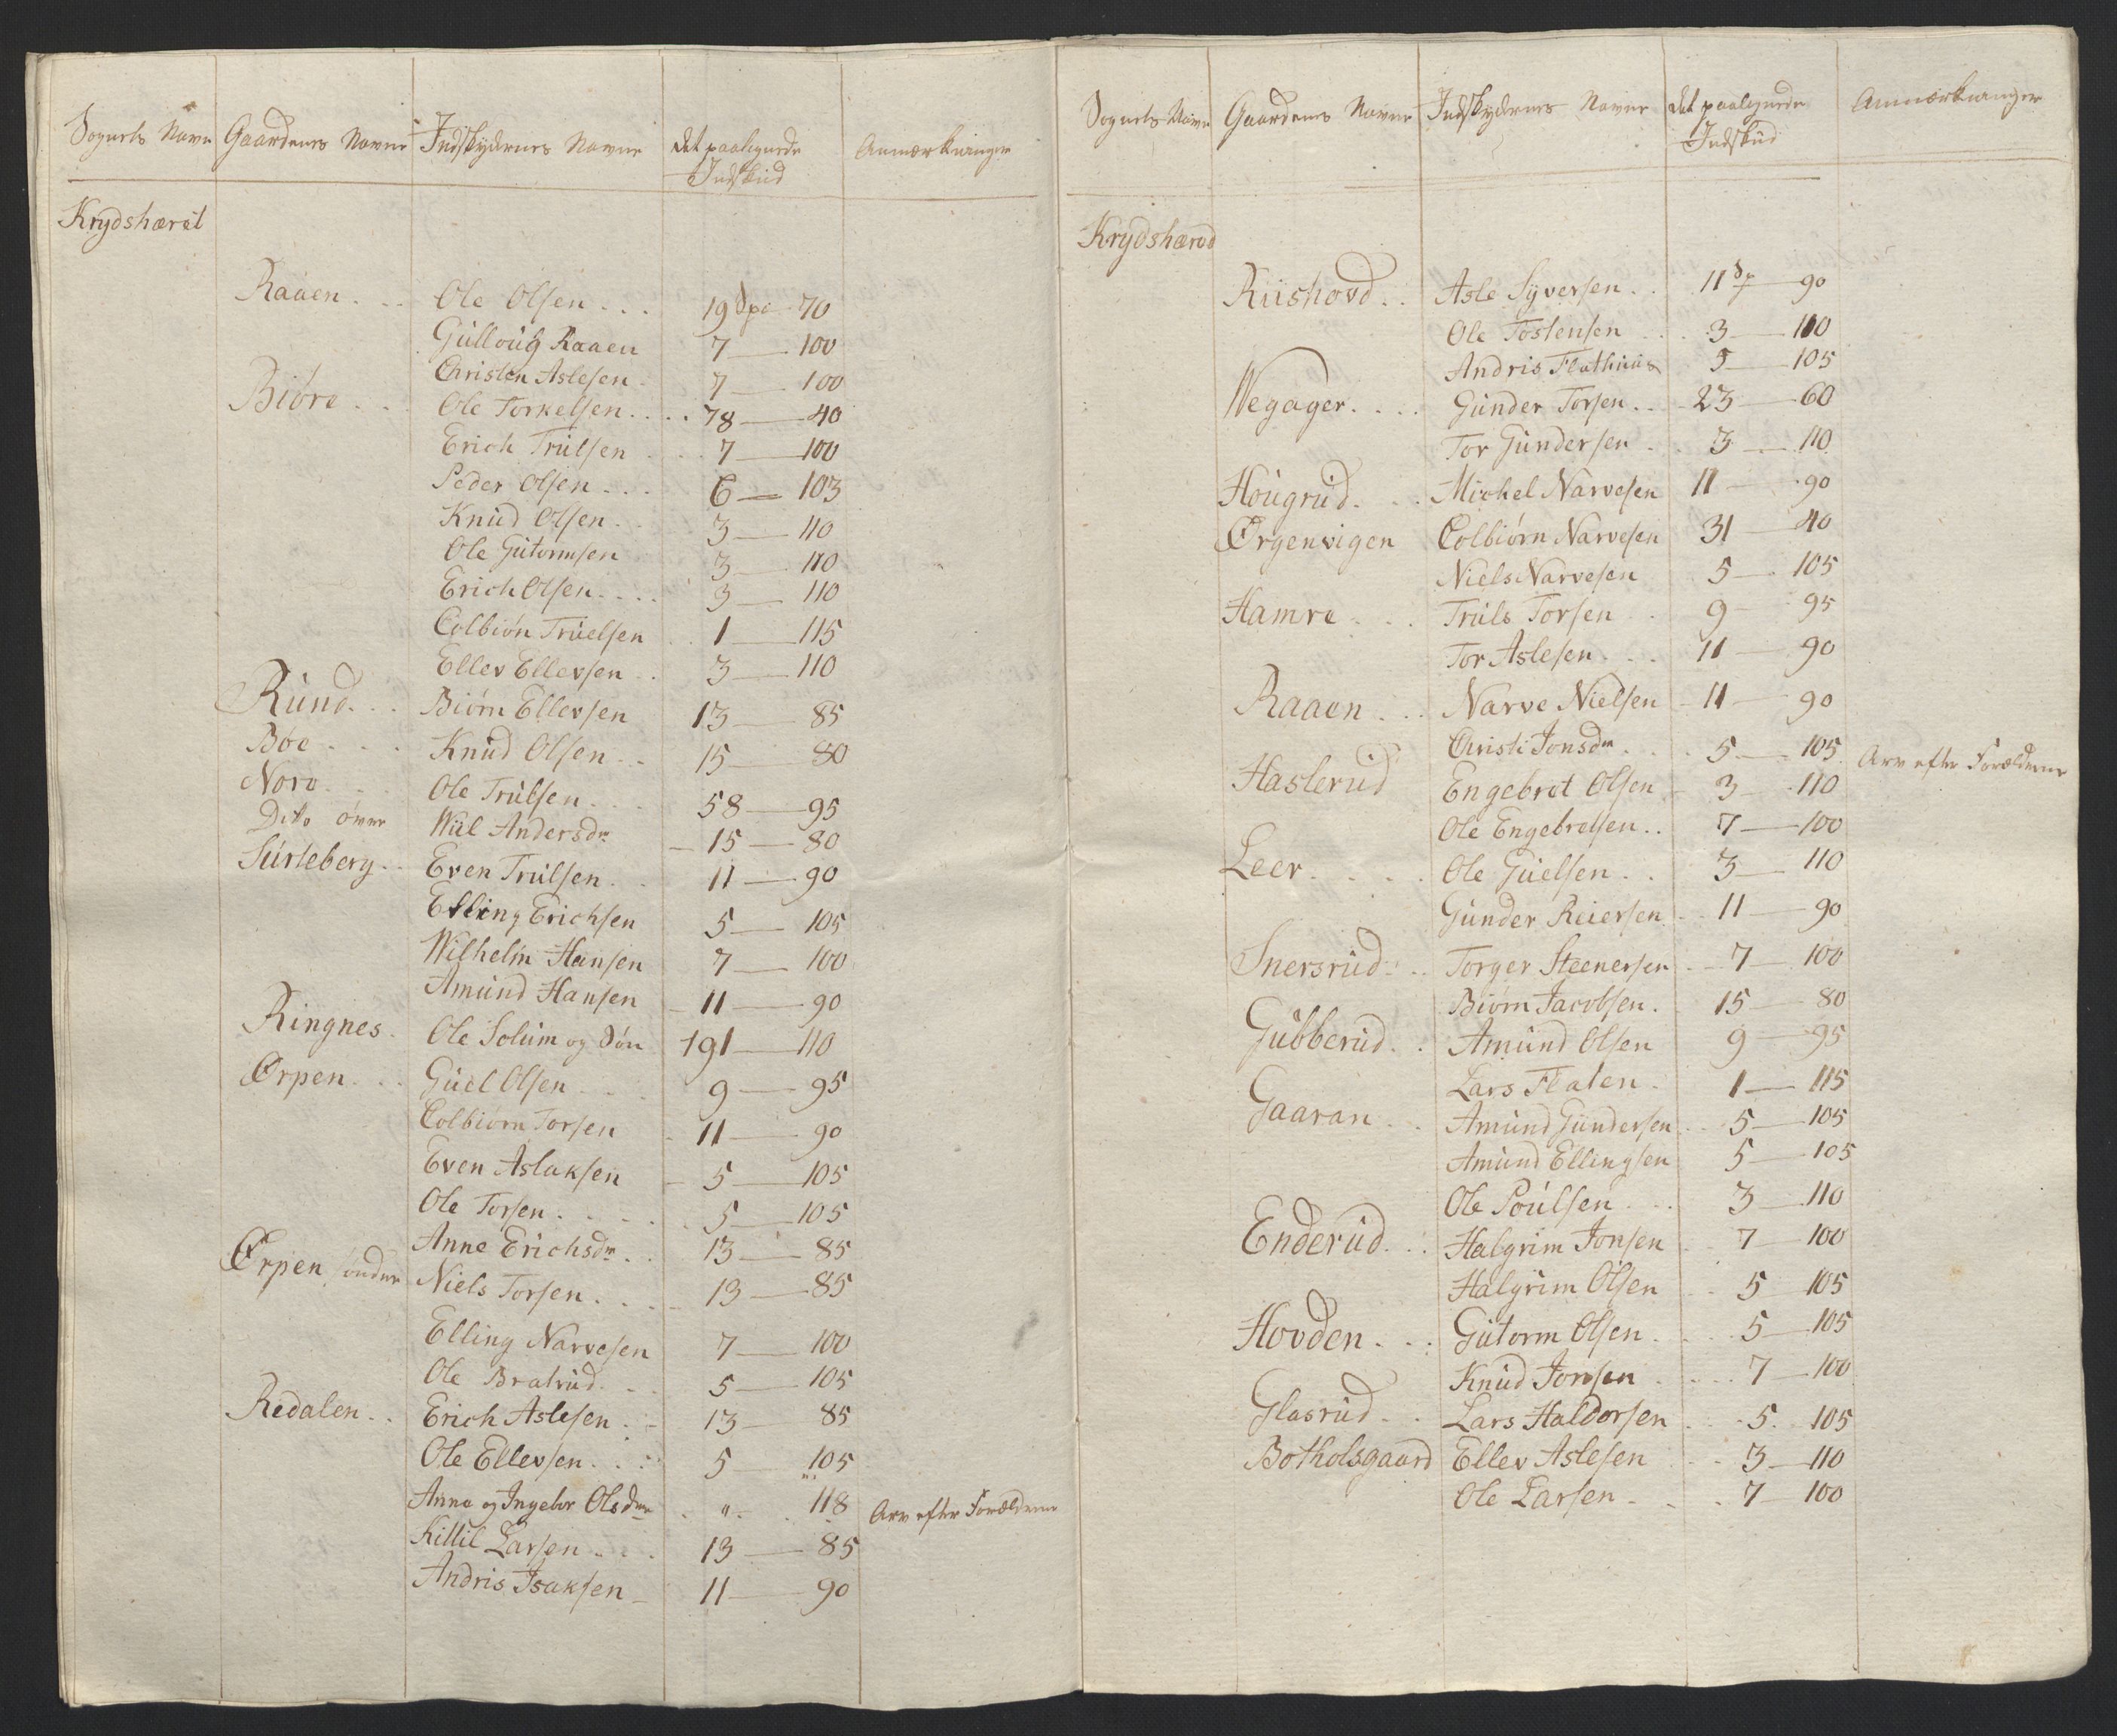 Sognets Navn Gaardenes Navne Indskydernes Navne det paalignede Anmærkninger
Indskud
Krydshæret
Raaen . . Ole Olsen . . . 19 Spe 70
Gulloug Raaen 7 — 100
Christen Aslesen . 7 — 100
Biøre . . . Ole Torkelsen . . . . 78 — 40
Erich Trulsen . . . 7 — 100
Peder Olsen . . . 6 — 103
Knud Olsen . . 3 — 110
Ole Gutormsen 3 — 110
Erich Olsen . . . . 3 — 110
Colbiøn Truelsen . . 1 — 115
Ellev Ellevsen . . 3 — 110
Rund . . . Biørn Ellevsen 13 — 85
Bøe . . . Knud Olsen . . 15 — 80
Nore . . . Ole Trulsen . . . 58 — 95
Dito øvre Wul Andersdr — 15 — 80
Surteberg . . Even Trulsen . . 11 — 90
Elling Erichsen 5 — 105
Wilhelm Hansen 7 — 100
Amund Hansen — 11 — 90
Ringnes . Ole Solum og Søn 191 — 110
Ørpen . . . Guel Olsen . . . 9 — 95
Colbiørn Torsen - 11 — 90
Even Aslaksen — 5 — 105
Ole Torsen . . . . . 5 — 105
Anne Erichsdr . . 13 — 85
Ørpen ønder Niels Torsen . . . — 13 — 85
Elling Narvesen 7 — 100
Ole Bratrud . . . 5 — 105
Redalen . . Erich Aslesen . - 13 — 85
Ole Ellevsen . . . 5 — 105
Anne og Ingebor Olsdr . „ . . 118 Arv efter Forældrene
Kittil Larsen . . . 13 — 85
Andris Isaksen — 11 — 90
Sognets Navn Gaardenes Navne Indskydernes Navne det paalignede Anmærkninger
Indskud
Krydshæred
Riishovd . . Asle Syversen . . 11 Sp — 90
Ole Tostensen . . 3 — 110
Andris Flathuus 5 — 105
Wegager . . . . Gunder Torsen . . 23 — 60
Tor Gundersen . . 3 — 110
Hougrud . . . Michel Narvesen 11 — 90
Ørgenvigen Colbiørn Narvesen 31 — 40
Niels Narvesen 5 — 105
Hamre . . . Truls Torsen . . 9 — 95
Tor Aslesen . . . 11 — 90
Raaen . . . Narve Nielsen - 11 — 90
Christi Jonsdr . . . 5 — 105 Arv efter Forældrene
Haslerud Engebret Olsen - 3 — 110
Ole Engebretsen . . 7 — 100
Leer . . . . Ole Guelsen . . 3 — 110
Gunder Reiersen - 11 — 90
Snersrud . . Torger Steenersen - 7 — 100
Biørn Jacobsen . 15 — 80
Gubberud . . Amund Olsen 9 — 95
Lars Flaten . 1 — 115
Gaaran . . Amund Gundersen . . 5 — 105
Amund Ellingsen 5 — 105
Ole Poulsen . . . 3 — 110
Enderud . . . Halgrim Jonsen . 7 — 100
Halgrim Olsen . . 5 105
Hovden . . . Gutorm Olsen . . . . 5 — 105
Knud Jonsen . . . . 7 — 100
Glasrud . . Lars Haldorsen . . 5 . 105
Botholsgaard Ellev Aslesen . . 3 — 110
Ole Larsen . . . 7 — 100